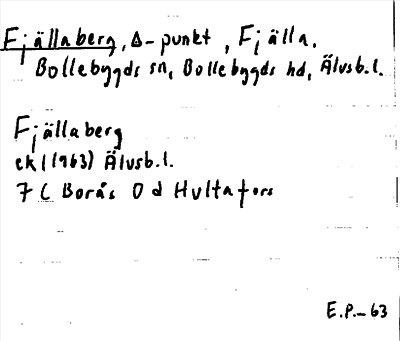 Fjällaberg, Δ-punkt, Fjälla,
Bollebygds sn, Bollebygds hd, Älvsb.l.
Fjällaberg
ek (1963) Älvsb.l.
7 C Borås 0 d Hultafors
E.P.-63